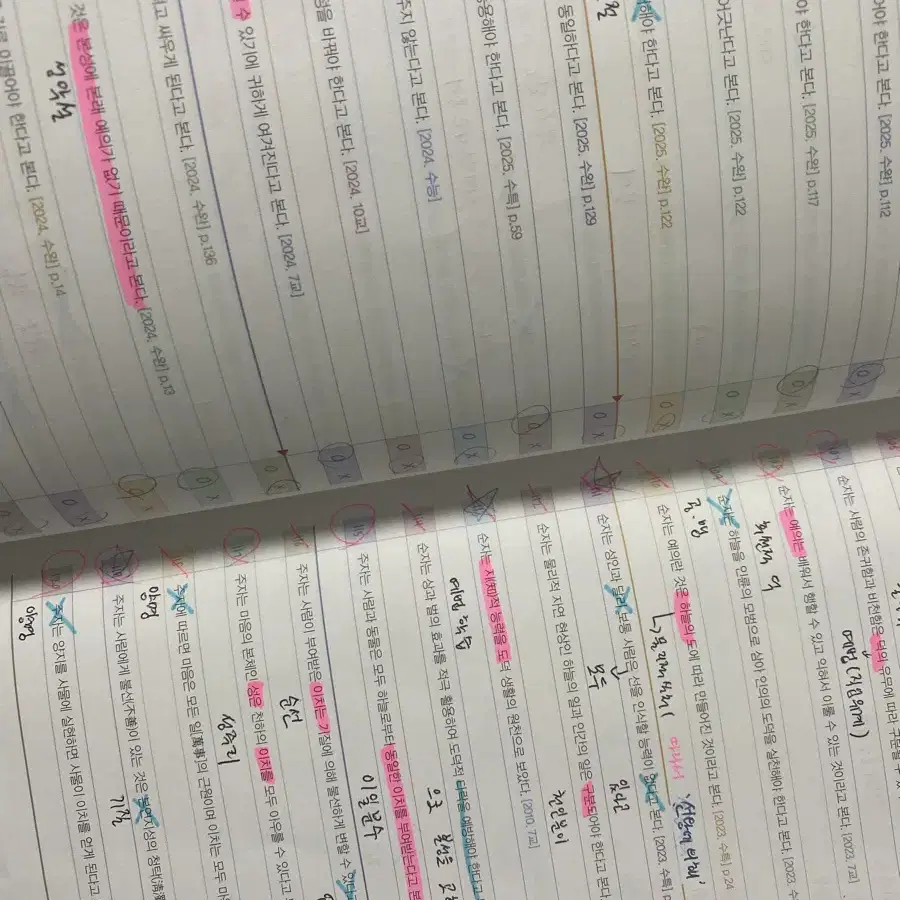 어야 한다고 본다. [2025, 수완] p.112
야 한다고 본다. [2025, 수완] p.117
어긋난다고 본다. [2025, 수완] p.122
해야 한다고 본다. [2025, 수완] p.122
동일하다고 본다. [2025, 수완] p.129
용해야 한다고 본다. [2025, 수특] p.59
주지 않는다고 본다. [2024, 수능]
을 바꿔야 한다고 본다. [2024, 10교]
수 있기에 귀하게 여겨진다고 본다. [2024, 7교]
고 싸우게 된다고 본다. [2024, 수완] p.136
것은 본성에 본래 예의가 없기 때문이라고 본다. [2024, 수완] p.13
성악설
이끌어야 한다고 본다. [2024, 수완] p.14
O X
순자는 사람의 존귀함과 비천함은 덕의 유무에 따라 구분될 수
예법 (직업위계)
순자는 예의는 배워서 행할 수 있고 익혀서 이룰 수 있는 것이라고 본다. [2023, 7교]
순자는 하늘을 인륜의 모범으로 삼아 인의의 도덕을 실천해야 한다고 본다. [2023, 수
공·맹
순자는 예의란 것은 하늘의 도에 따라 만들어진 것이라고 본다. [2023, 수특] p.24
순자는 성인과 달리 모든 사람은 선을 인식할 능력이 없다고 본다. [2023, 수특]
모두
있다고
순자는 물리적 자연 현상인 하늘의 일과 인간의 일은 구분되어야 한다고 본다.
천인분이
순자는 재지적 능력을 도덕 생활의 원천으로 보았다. [2010, 7교]
예법 학습
순자는 상과 벌의 효과를 적극 활용하여 도덕적 타락을 예방해야 한다고
으로 본성을
주자는 사람과 동물은 모두 하늘로부터 동일한 이치를 부여받는다고 본
이일분수
주자는 사람이 부여받은 이치는 기질에 의해 불선하게 변할 수 있다고
순선
주자는 마음의 본체인 성은 천하의 이치를 모두 이룰 수 있다고
성즉리
주자에 따르면 마음은 모든 일[萬事]의 근원이며 이치는 모두 마
양명
주자는 사람에게 불선(不善)이 있는 것은 본연지성의 청탁(淸濁
기질
주자는 양지를 사물에 실현하면 사물이 이치를 얻게 된다고
양명